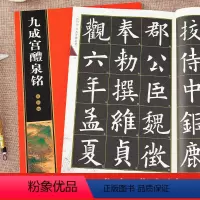 九成宫醴泉铭
校侍中鉅鹿
郡公臣魏徵
奉勑撰維貞
觀六年孟夏
粉象优品